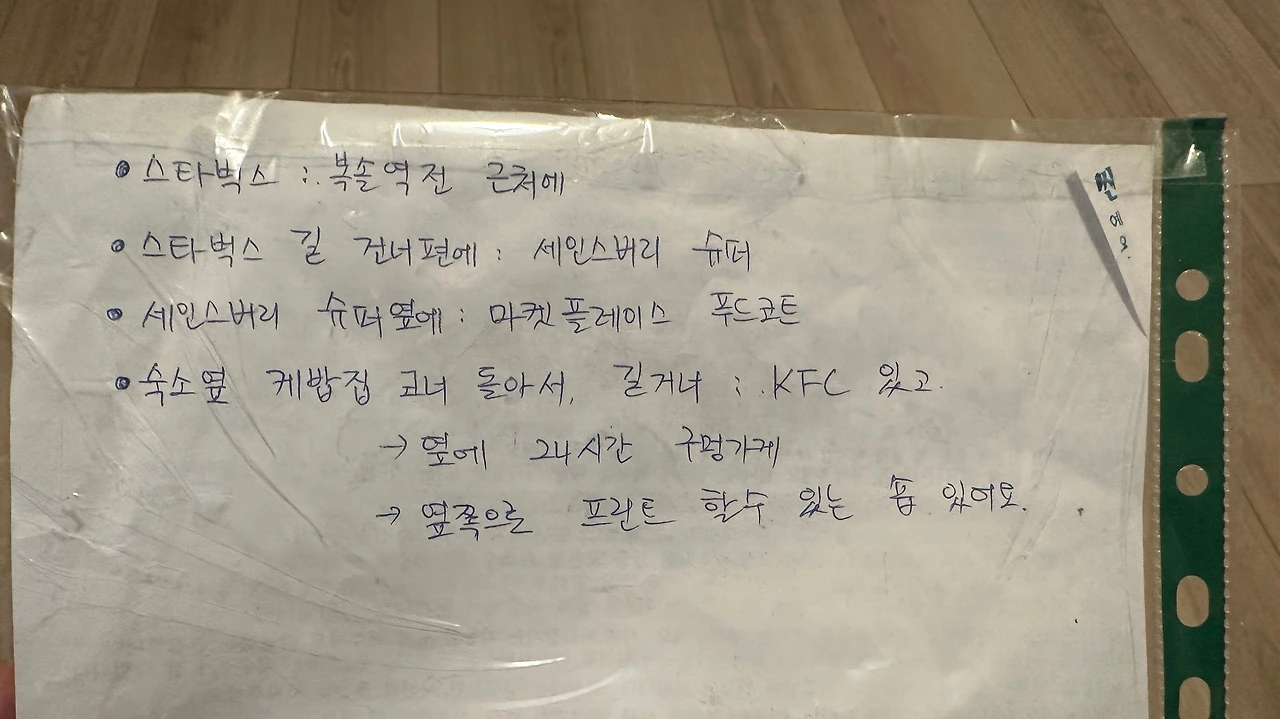 • 스타벅스 : 복솔역전 근처에
• 스타벅스 길 건너편에 : 세인스버리 슈퍼
• 세인스버리 슈퍼옆에 : 마켓플레이스 푸드코트
• 숙소옆 케밥집 코너 돌아서, 길거너 : KFC 있고.
→ 옆에 24시간 구멍가게
→ 옆쪽으로 프린트 할수 있는 숍 있어요.
에요.